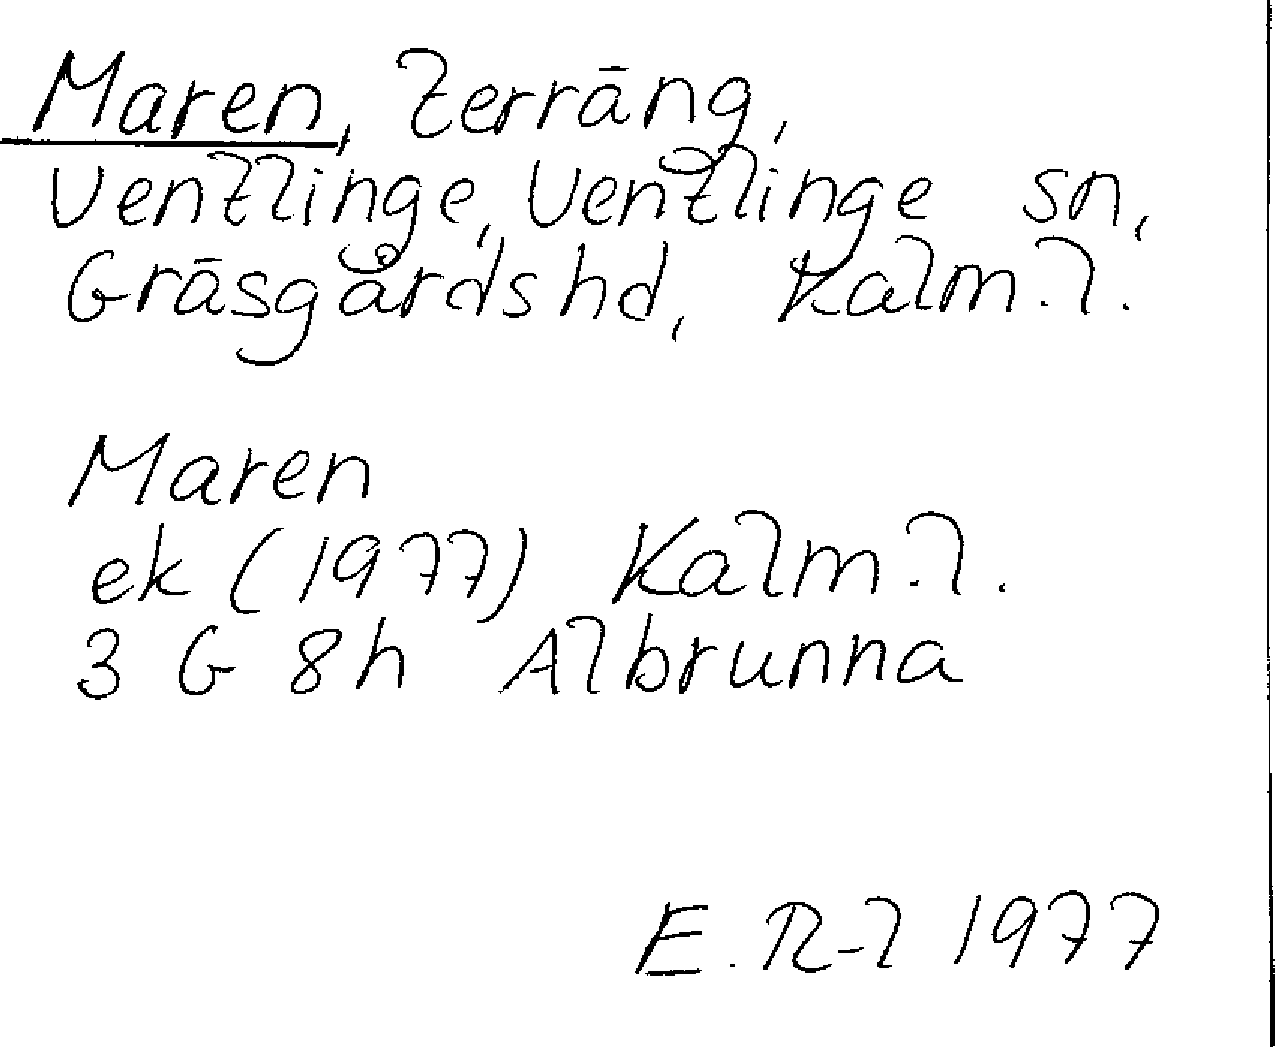 Maren, terräng,
Ventlinge, Ventlinge sn,
Gräsgårds hd, Kalm. l.
Maren
ek (1977) Kalm. l.
3 G 8h Albrunna
E. R-l 1977